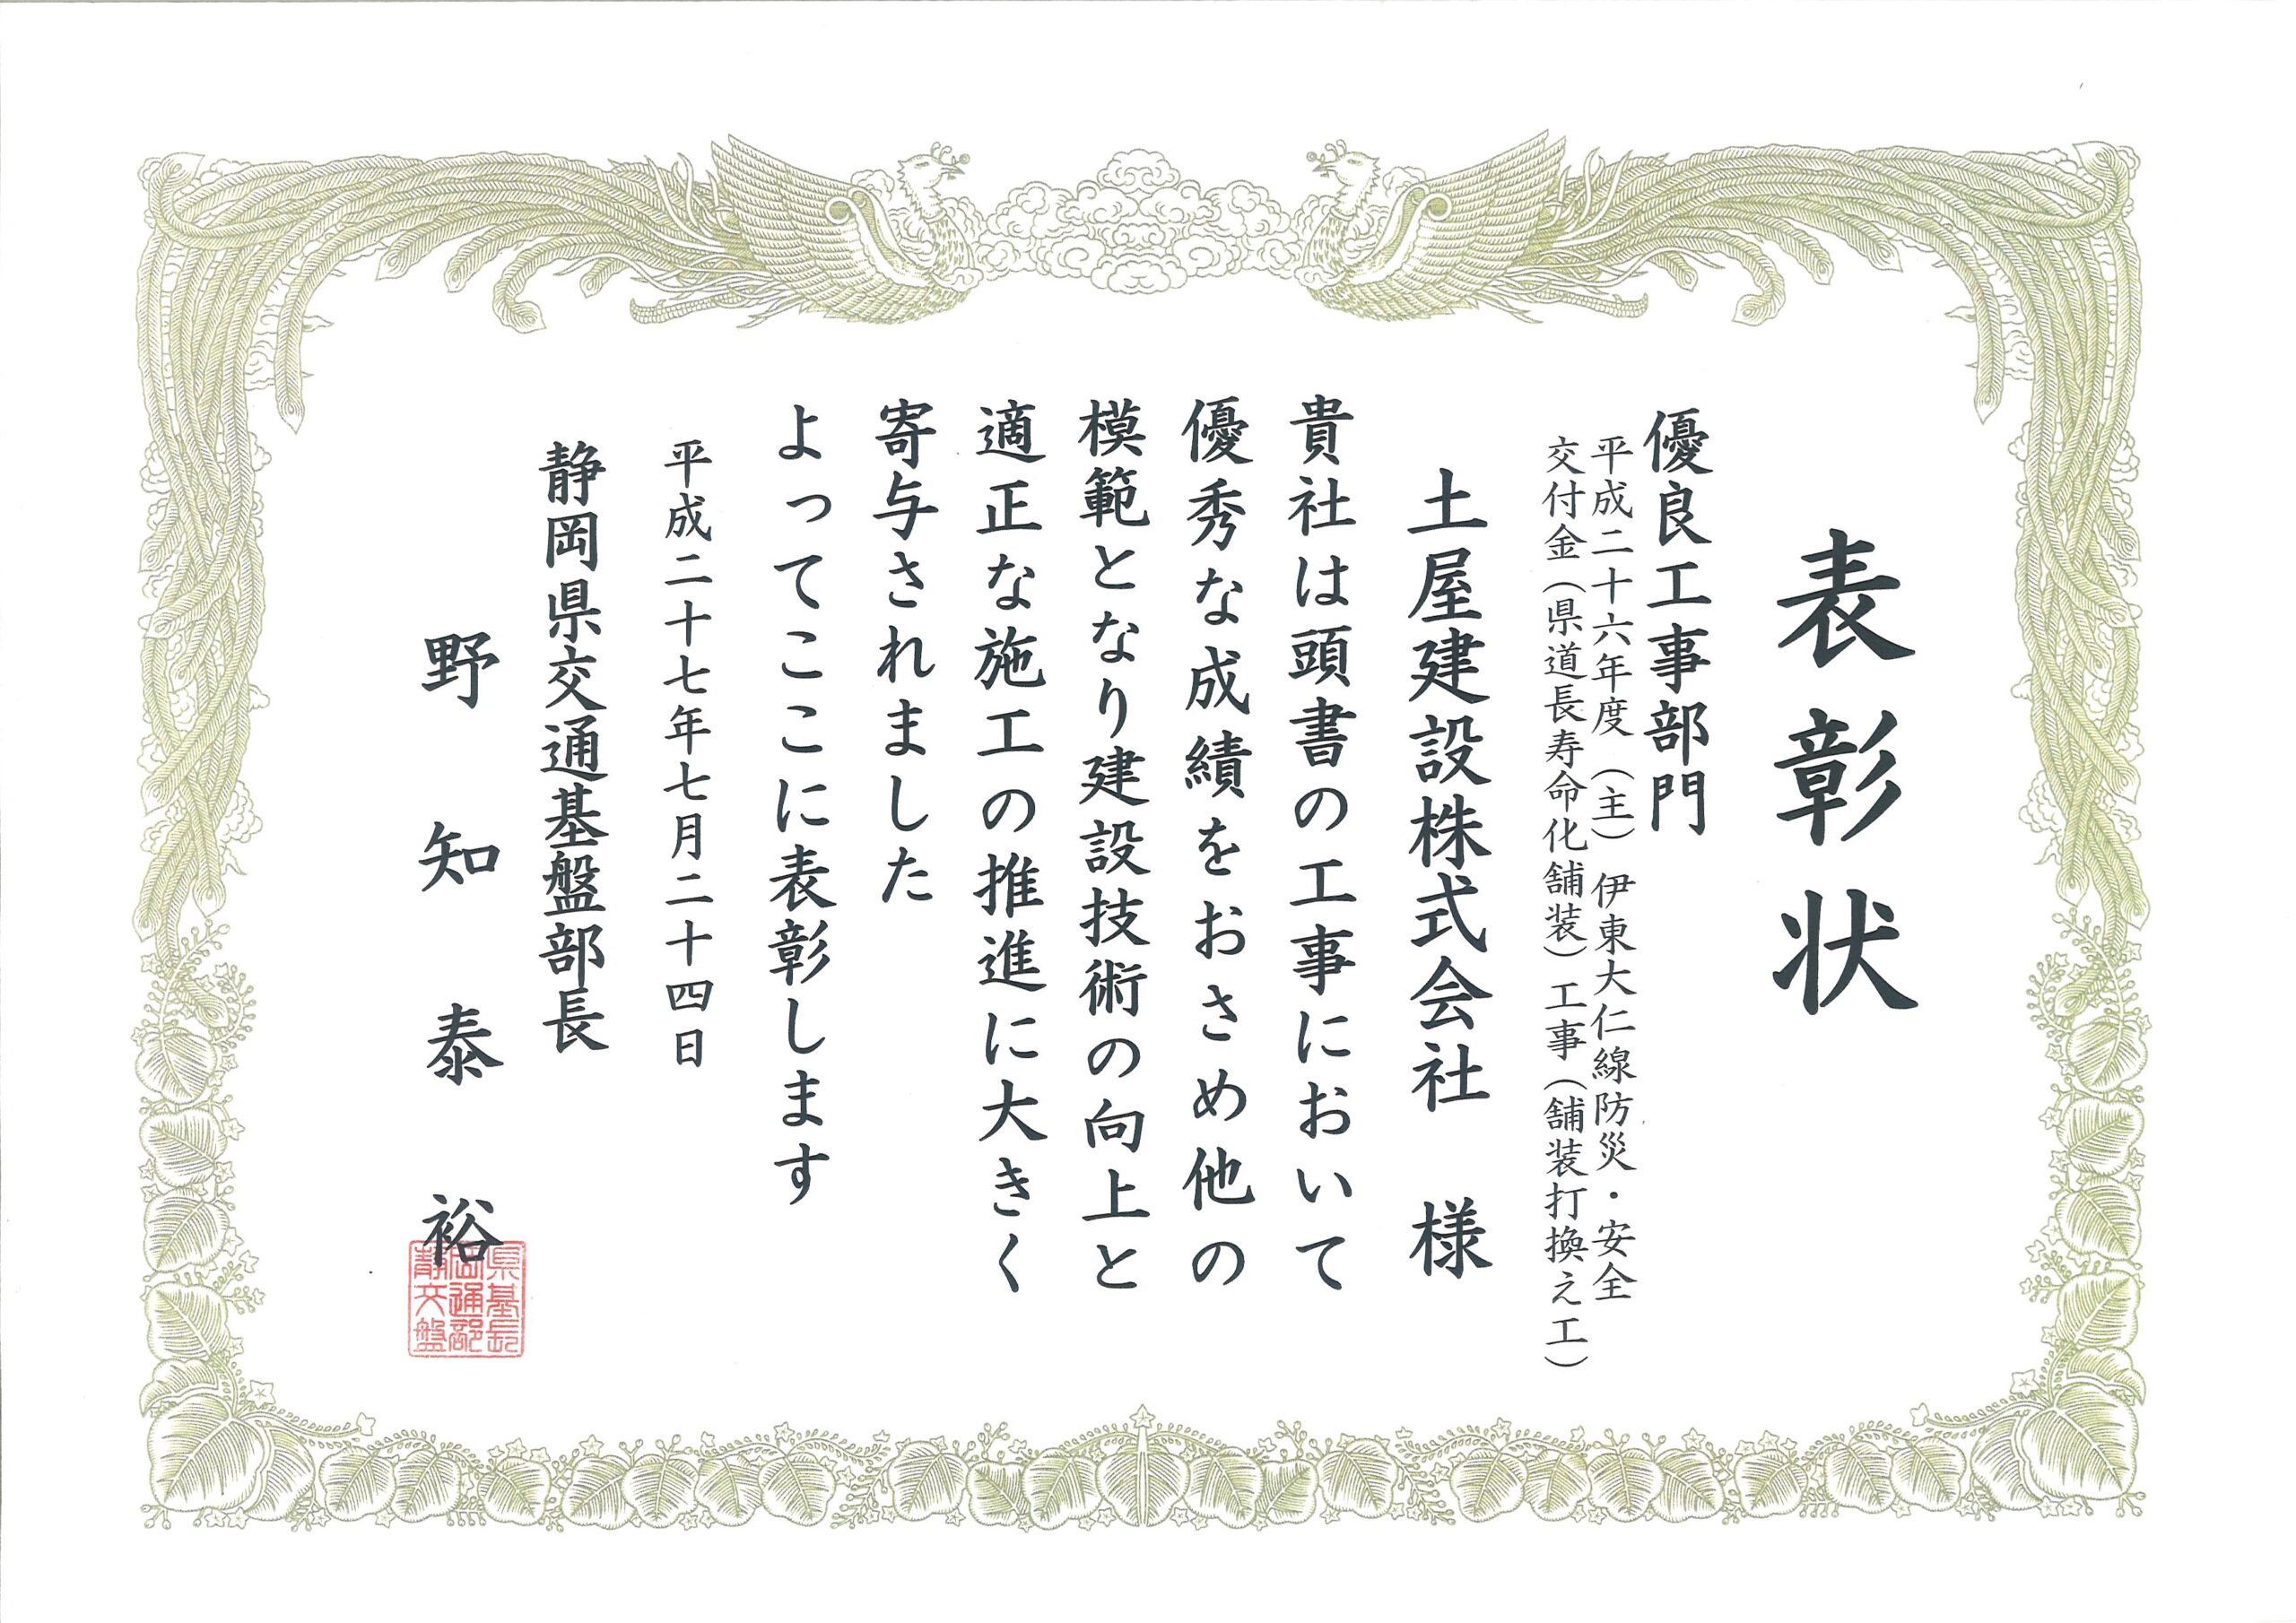 表彰状
優良工事部門
平成二十六年度（主）伊東大仁線防災・安全
交付金（県道長寿命化舗装）工事（舗装打換え工）
土屋建設株式会社　様
貴社は頭書の工事において
優秀な成績をおさめ他の
模範となり建設技術の向上と
適正な施工の推進に大きく
寄与されました
よってここに表彰します
平成二十七年七月二十四日
静岡県交通基盤部長
野知泰裕
静岡県
交通基
盤部長